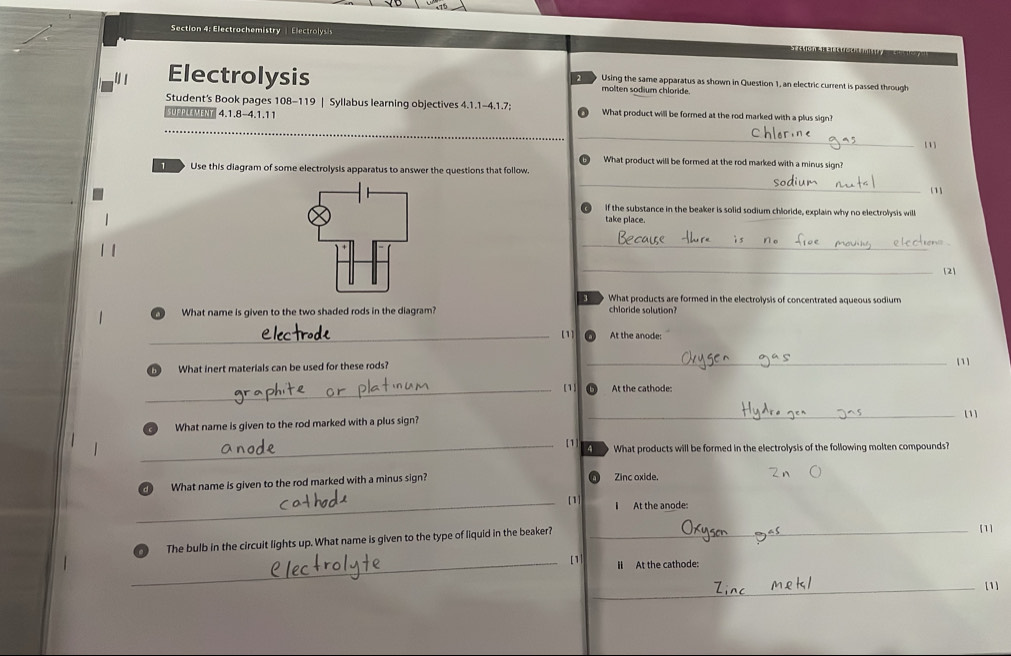 Section 4: Electrochemistry | Electrolysis
Electrolysis
Student's Book pages 108–119 | Syllabus learning objectives 4.1.1–4.1.7;
SUPPLEMENT 4.1.8–4.1.11
1 Use this diagram of some electrolysis apparatus to answer the questions that follow.
+ −
a What name is given to the two shaded rods in the diagram?
electrode [1]
b What inert materials can be used for these rods?
graphite or platinum [1]
c What name is given to the rod marked with a plus sign?
anode [1]
d What name is given to the rod marked with a minus sign?
cathode [1]
e The bulb in the circuit lights up. What name is given to the type of liquid in the beaker?
electrolyte [1]
Section 4: Electrochemistry
2 Using the same apparatus as shown in Question 1, an electric current is passed through
molten sodium chloride.
a What product will be formed at the rod marked with a plus sign?
Chlorine gas [1]
b What product will be formed at the rod marked with a minus sign?
sodium metal [1]
c If the substance in the beaker is solid sodium chloride, explain why no electrolysis will
take place.
Because there is no free moving electrons.
[2]
3 What products are formed in the electrolysis of concentrated aqueous sodium
chloride solution?
a At the anode:
Oxygen gas [1]
b At the cathode:
Hydrogen gas [1]
4 What products will be formed in the electrolysis of the following molten compounds?
a Zinc oxide. Zn O
i At the anode:
Oxygen gas [1]
ii At the cathode:
Zinc metal [1]